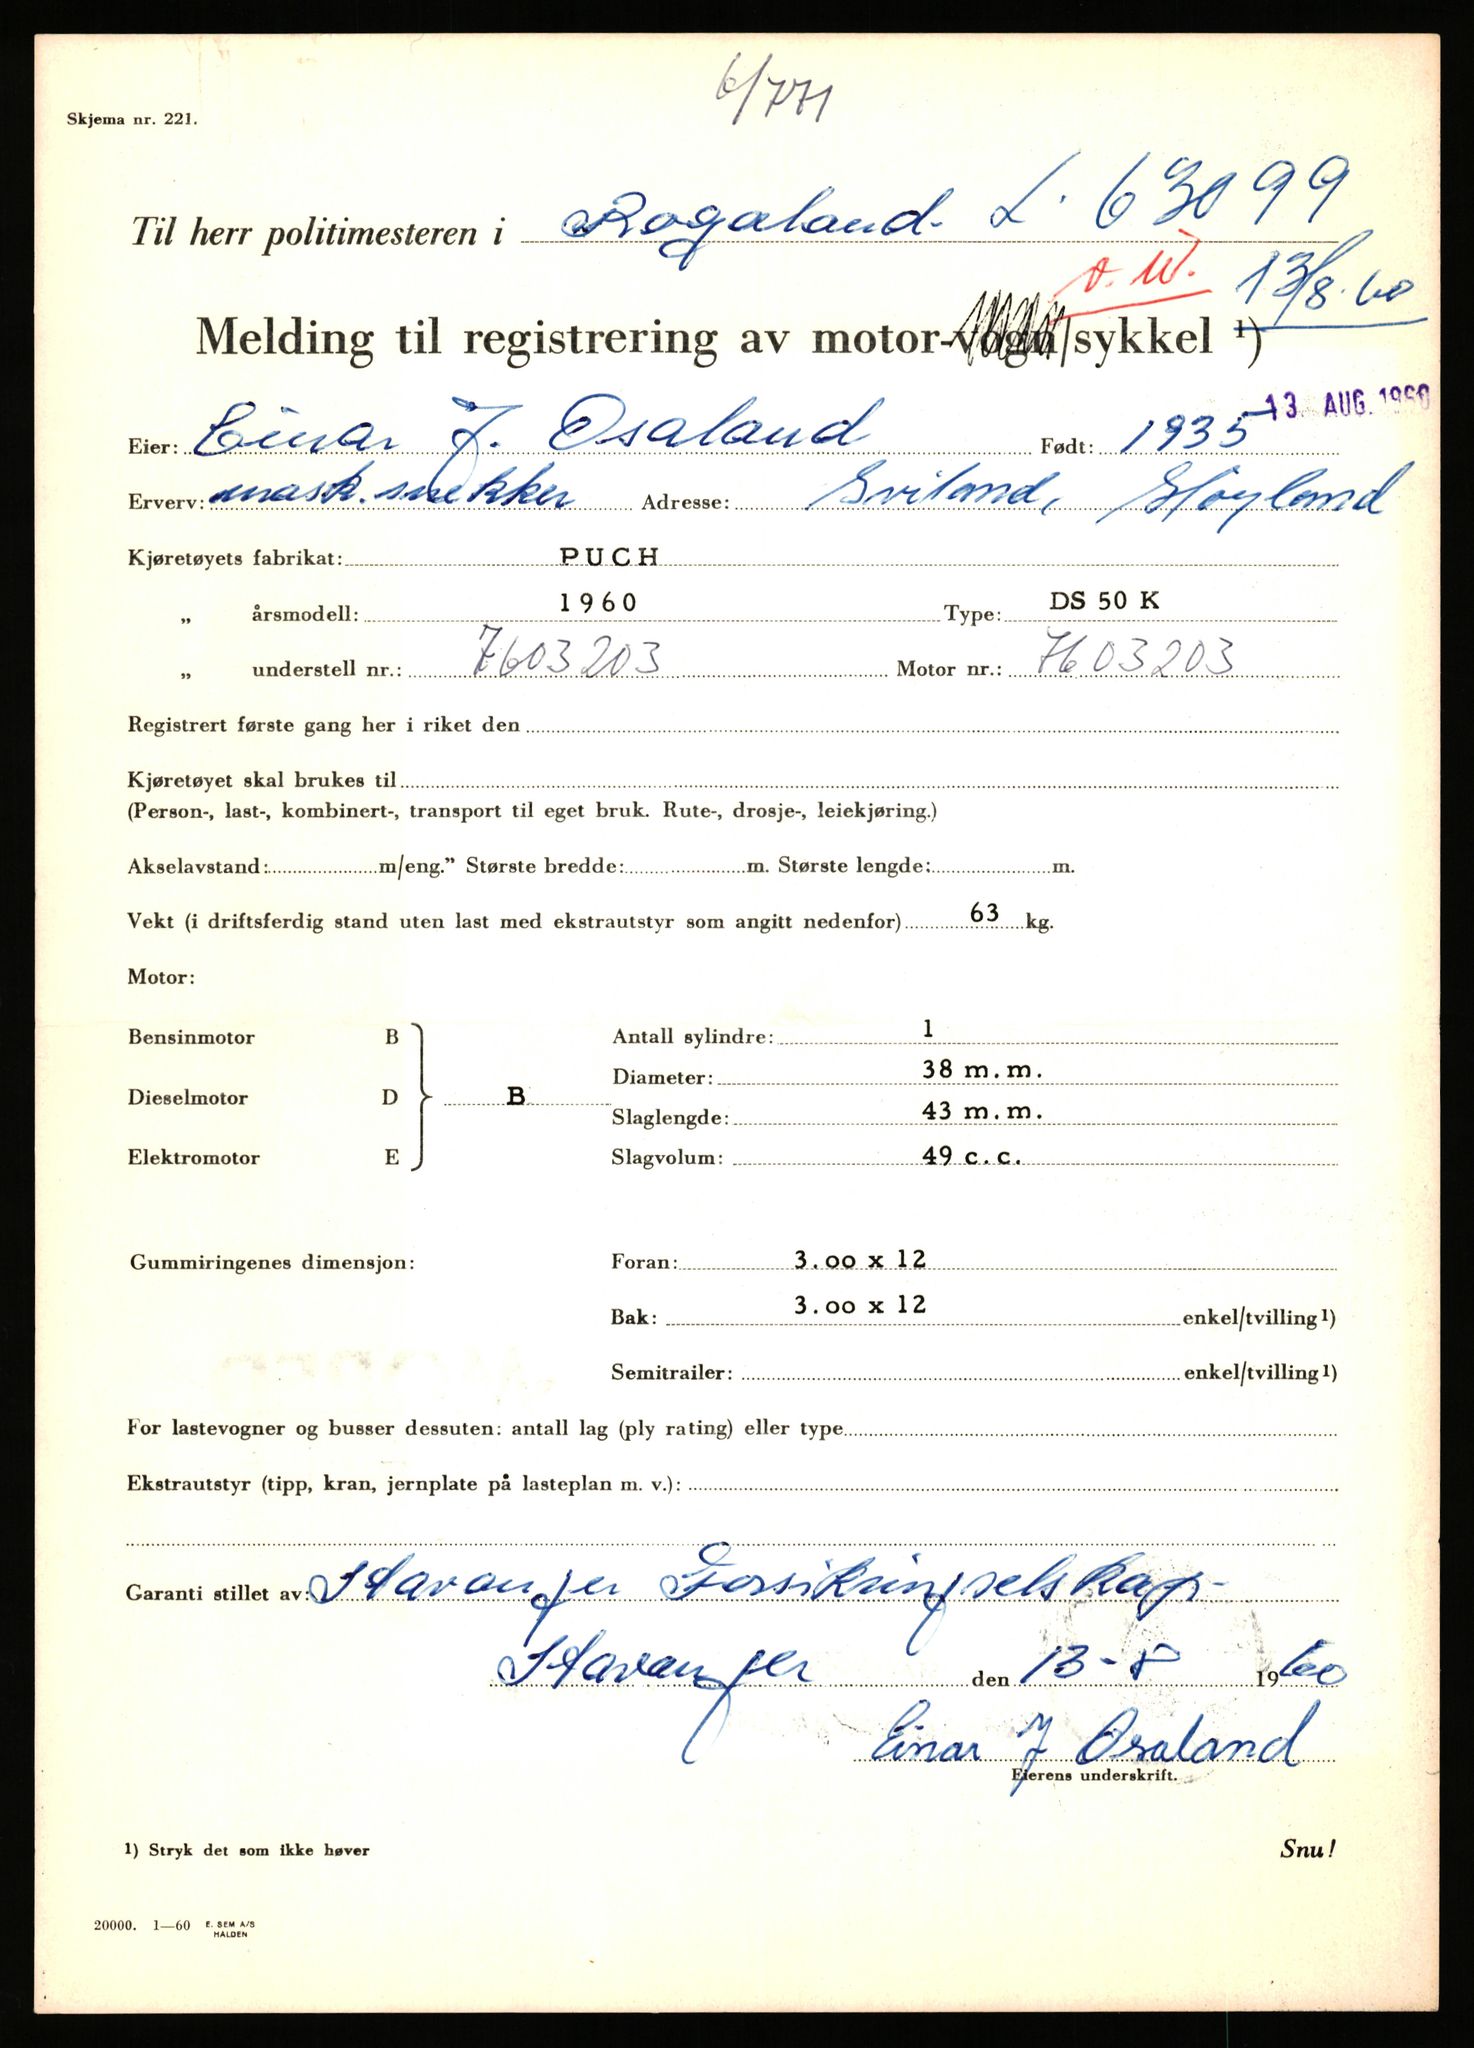 6/771
Skjema nr. 221.
Til herr politimesteren i Rogaland. L. 63099
13/8.60
Melding til registrering av motor-vogn/sykkel ¹)
13. AUG. 1960
Eier: Einar J. Osaland Født: 1935
Erverv: mask.snekker Adresse: Sviland, Høyland
Kjøretøyets fabrikat: PUCH
„ årsmodell: 1960 Type: DS 50 K
„ understell nr.: 7603203 Motor nr.: 7603203
Registrert første gang her i riket den
Kjøretøyet skal brukes til
(Person-, last-, kombinert-, transport til eget bruk. Rute-, drosje-, leiekjøring.)
Akselavstand: m/eng.” Største bredde: m. Største lengde: m.
Vekt (i driftsferdig stand uten last med ekstrautstyr som angitt nedenfor) 63 kg.
Motor:
Bensinmotor B Antall sylindre: 1
Diameter: 38 m.m.
Dieselmotor D B
Slaglengde: 43 m.m.
Elektromotor E Slagvolum: 49 c.c.
Gummiringenes dimensjon: Foran: 3.oo x 12
Bak: 3.oo x 12 enkel/tvilling ¹)
Semitrailer: enkel/tvilling ¹)
For lastevogner og busser dessuten: antall lag (ply rating) eller type
Ekstrautstyr (tipp, kran, jernplate på lasteplan m. v.):
Garanti stillet av: Stavanger Forsikringselskap
Stavanger den 13-8 1960
Einar J Osaland
Eierens underskrift.
1) Stryk det som ikke høver Snu!
20000. 1—60 E. SEM A/S
HALDEN